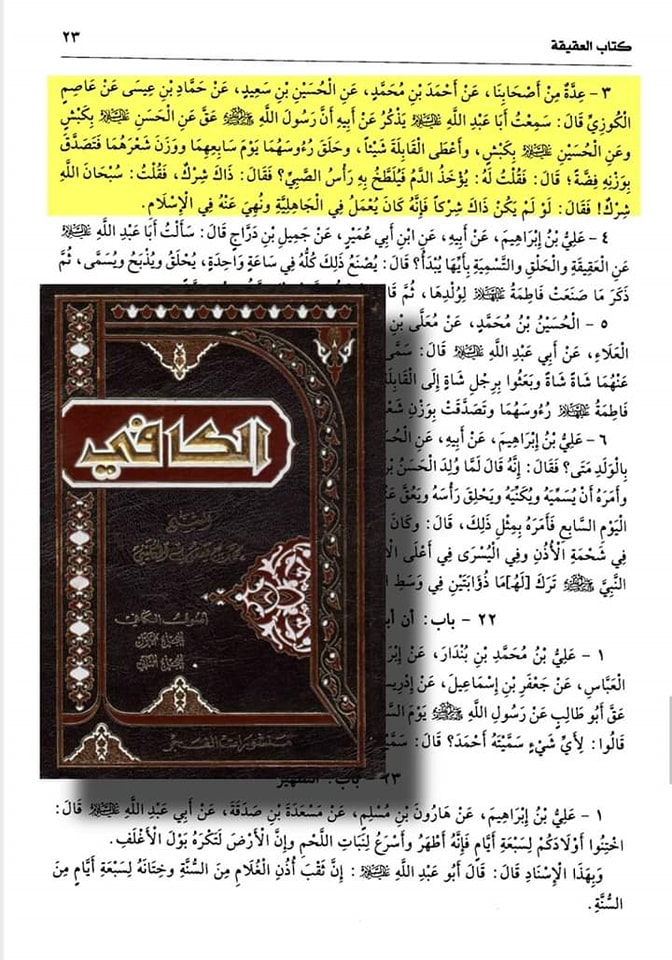 كتاب العقيقة
٢٣
٣ - عِدَّةٌ مِنْ أَصْحَابِنَا، عَنْ أَحْمَدَ بْنِ مُحَمَّدٍ، عَنِ الْحُسَيْنِ بْنِ سَعِيدٍ، عَنْ حَمَّادِ بْنِ عِيسَى عَنْ عَاصِمٍ
الْكُوزِيِّ قَالَ: سَمِعْتُ أَبَا عَبْدِ اللَّهِ عَلَيْهِ السَّلَام يَذْكُرُ عَنْ أَبِيهِ أَنَّ رَسُولَ اللَّهِ ﷺ عَقَّ عَنِ الْحَسَنِ عَلَيْهِ السَّلَام بِكَبْشٍ
وَعَنِ الْحُسَيْنِ عَلَيْهِ السَّلَام بِكَبْشٍ، وَأَعْطَى الْقَابِلَةَ شَيْئاً، وَحَلَقَ رُءُوسَهُمَا يَوْمَ سَابِعِهِمَا وَوَزَنَ شَعْرَهُمَا فَتَصَدَّقَ
بِوَزْنِهِ فِضَّةً؛ قَالَ: فَقُلْتُ لَهُ: يُؤْخَذُ الدَّمُ فَيُلَطَّخُ بِهِ رَأْسُ الصَّبِيِّ؟ فَقَالَ: ذَاكَ شِرْكٌ، فَقُلْتُ: سُبْحَانَ اللَّهِ
شِرْكٌ! فَقَالَ: لَوْ لَمْ يَكُنْ ذَاكَ شِرْكاً فَإِنَّهُ كَانَ يُعْمَلُ فِي الْجَاهِلِيَّةِ وَنُهِيَ عَنْهُ فِي الْإِسْلَامِ.
٤ - عَلِيُّ بْنُ إِبْرَاهِيمَ، عَنْ أَبِيهِ، عَنِ ابْنِ أَبِي عُمَيْرٍ، عَنْ جَمِيلِ بْنِ دَرَّاجٍ قَالَ: سَأَلْتُ أَبَا عَبْدِ اللَّهِ عَلَيْهِ السَّلَام
عَنِ الْعَقِيقَةِ وَالْحَلْقِ وَالتَّسْمِيَةِ بِأَيِّهَا يُبْدَأُ؟ قَالَ: يُصْنَعُ ذَلِكَ كُلُّهُ فِي سَاعَةٍ وَاحِدَةٍ، يُحْلَقُ وَيُذْبَحُ وَيُسَمَّى، ثُمَّ
ذَكَرَ مَا صَنَعَتْ فَاطِمَةُ عَلَيْهَا السَّلَام لِوُلْدِهَا، ثُمَّ
٥ - الْحُسَيْنُ بْنُ مُحَمَّدٍ، عَنْ مُعَلَّى بْنِ
الْعَلَاءِ، عَنْ أَبِي عَبْدِ اللَّهِ عَلَيْهِ السَّلَام قَالَ: سَمَّى
عَنْهُمَا شَاةً شَاةً وَبَعَثُوا بِرِجْلِ شَاةٍ إِلَى الْقَابِلَةِ
فَاطِمَةُ عَلَيْهَا السَّلَام رُءُوسَهُمَا وَتَصَدَّقَتْ بِوَزْنِ
٦ - عَلِيُّ بْنُ إِبْرَاهِيمَ، عَنْ أَبِيهِ، عَنِ
بِالْوَلَدِ مَتَى؟ فَقَالَ: إِنَّهُ قَالَ لَمَّا وُلِدَ الْحَسَنُ
وَأَمَرَهُ أَنْ يُسَمِّيَهُ وَيُكَنِّيَهُ وَيَحْلِقَ رَأْسَهُ وَيَعُقَّ
الْيَوْمِ السَّابِعِ فَأَمَرَهُ بِمِثْلِ ذَلِكَ، قَالَ: وَكَانَ
فِي شَحْمَةِ الْأُذُنِ وَفِي الْيُسْرَى فِي أَعْلَى
النَّبِيَّ ﷺ تَرَكَ [لَهُ]مَا ذُؤَابَتَيْنِ فِي وَسَطِ
٢٢ - باب: أن
١ - عَلِيُّ بْنُ مُحَمَّدِ بْنِ بُنْدَارَ، عَنْ
الْعَبَّاسِ، عَنْ جَعْفَرِ بْنِ إِسْمَاعِيلَ، عَنْ
عَقَّ أَبُو طَالِبٍ عَنْ رَسُولِ اللَّهِ ﷺ يَوْمَ
قَالُوا: لِأَيِّ شَيْءٍ سَمَّيْتَهُ أَحْمَدَ؟ قَالَ:
٢٣ - باب: التطهير
١ - عَلِيُّ بْنُ إِبْرَاهِيمَ، عَنْ هَارُونَ بْنِ مُسْلِمٍ، عَنْ مَسْعَدَةَ بْنِ صَدَقَةَ، عَنْ أَبِي عَبْدِ اللَّهِ عَلَيْهِ السَّلَام قَالَ:
اخْتِنُوا أَوْلَادَكُمْ لِسَبْعَةِ أَيَّامٍ فَإِنَّهُ أَطْهَرُ وَأَسْرَعُ لِنَبَاتِ اللَّحْمِ وَإِنَّ الْأَرْضَ لَتَكْرَهُ بَوْلَ الْأَغْلَفِ.
وَبِهَذَا الْإِسْنَادِ قَالَ: قَالَ أَبُو عَبْدِ اللَّهِ عَلَيْهِ السَّلَام: إِنَّ ثَقْبَ أُذُنِ الْغُلَامِ مِنَ السُّنَّةِ وَخِتَانَهُ لِسَبْعَةِ أَيَّامٍ مِنَ
السُّنَّةِ.
الكافي
أصول الكافي
منشورات الفجر